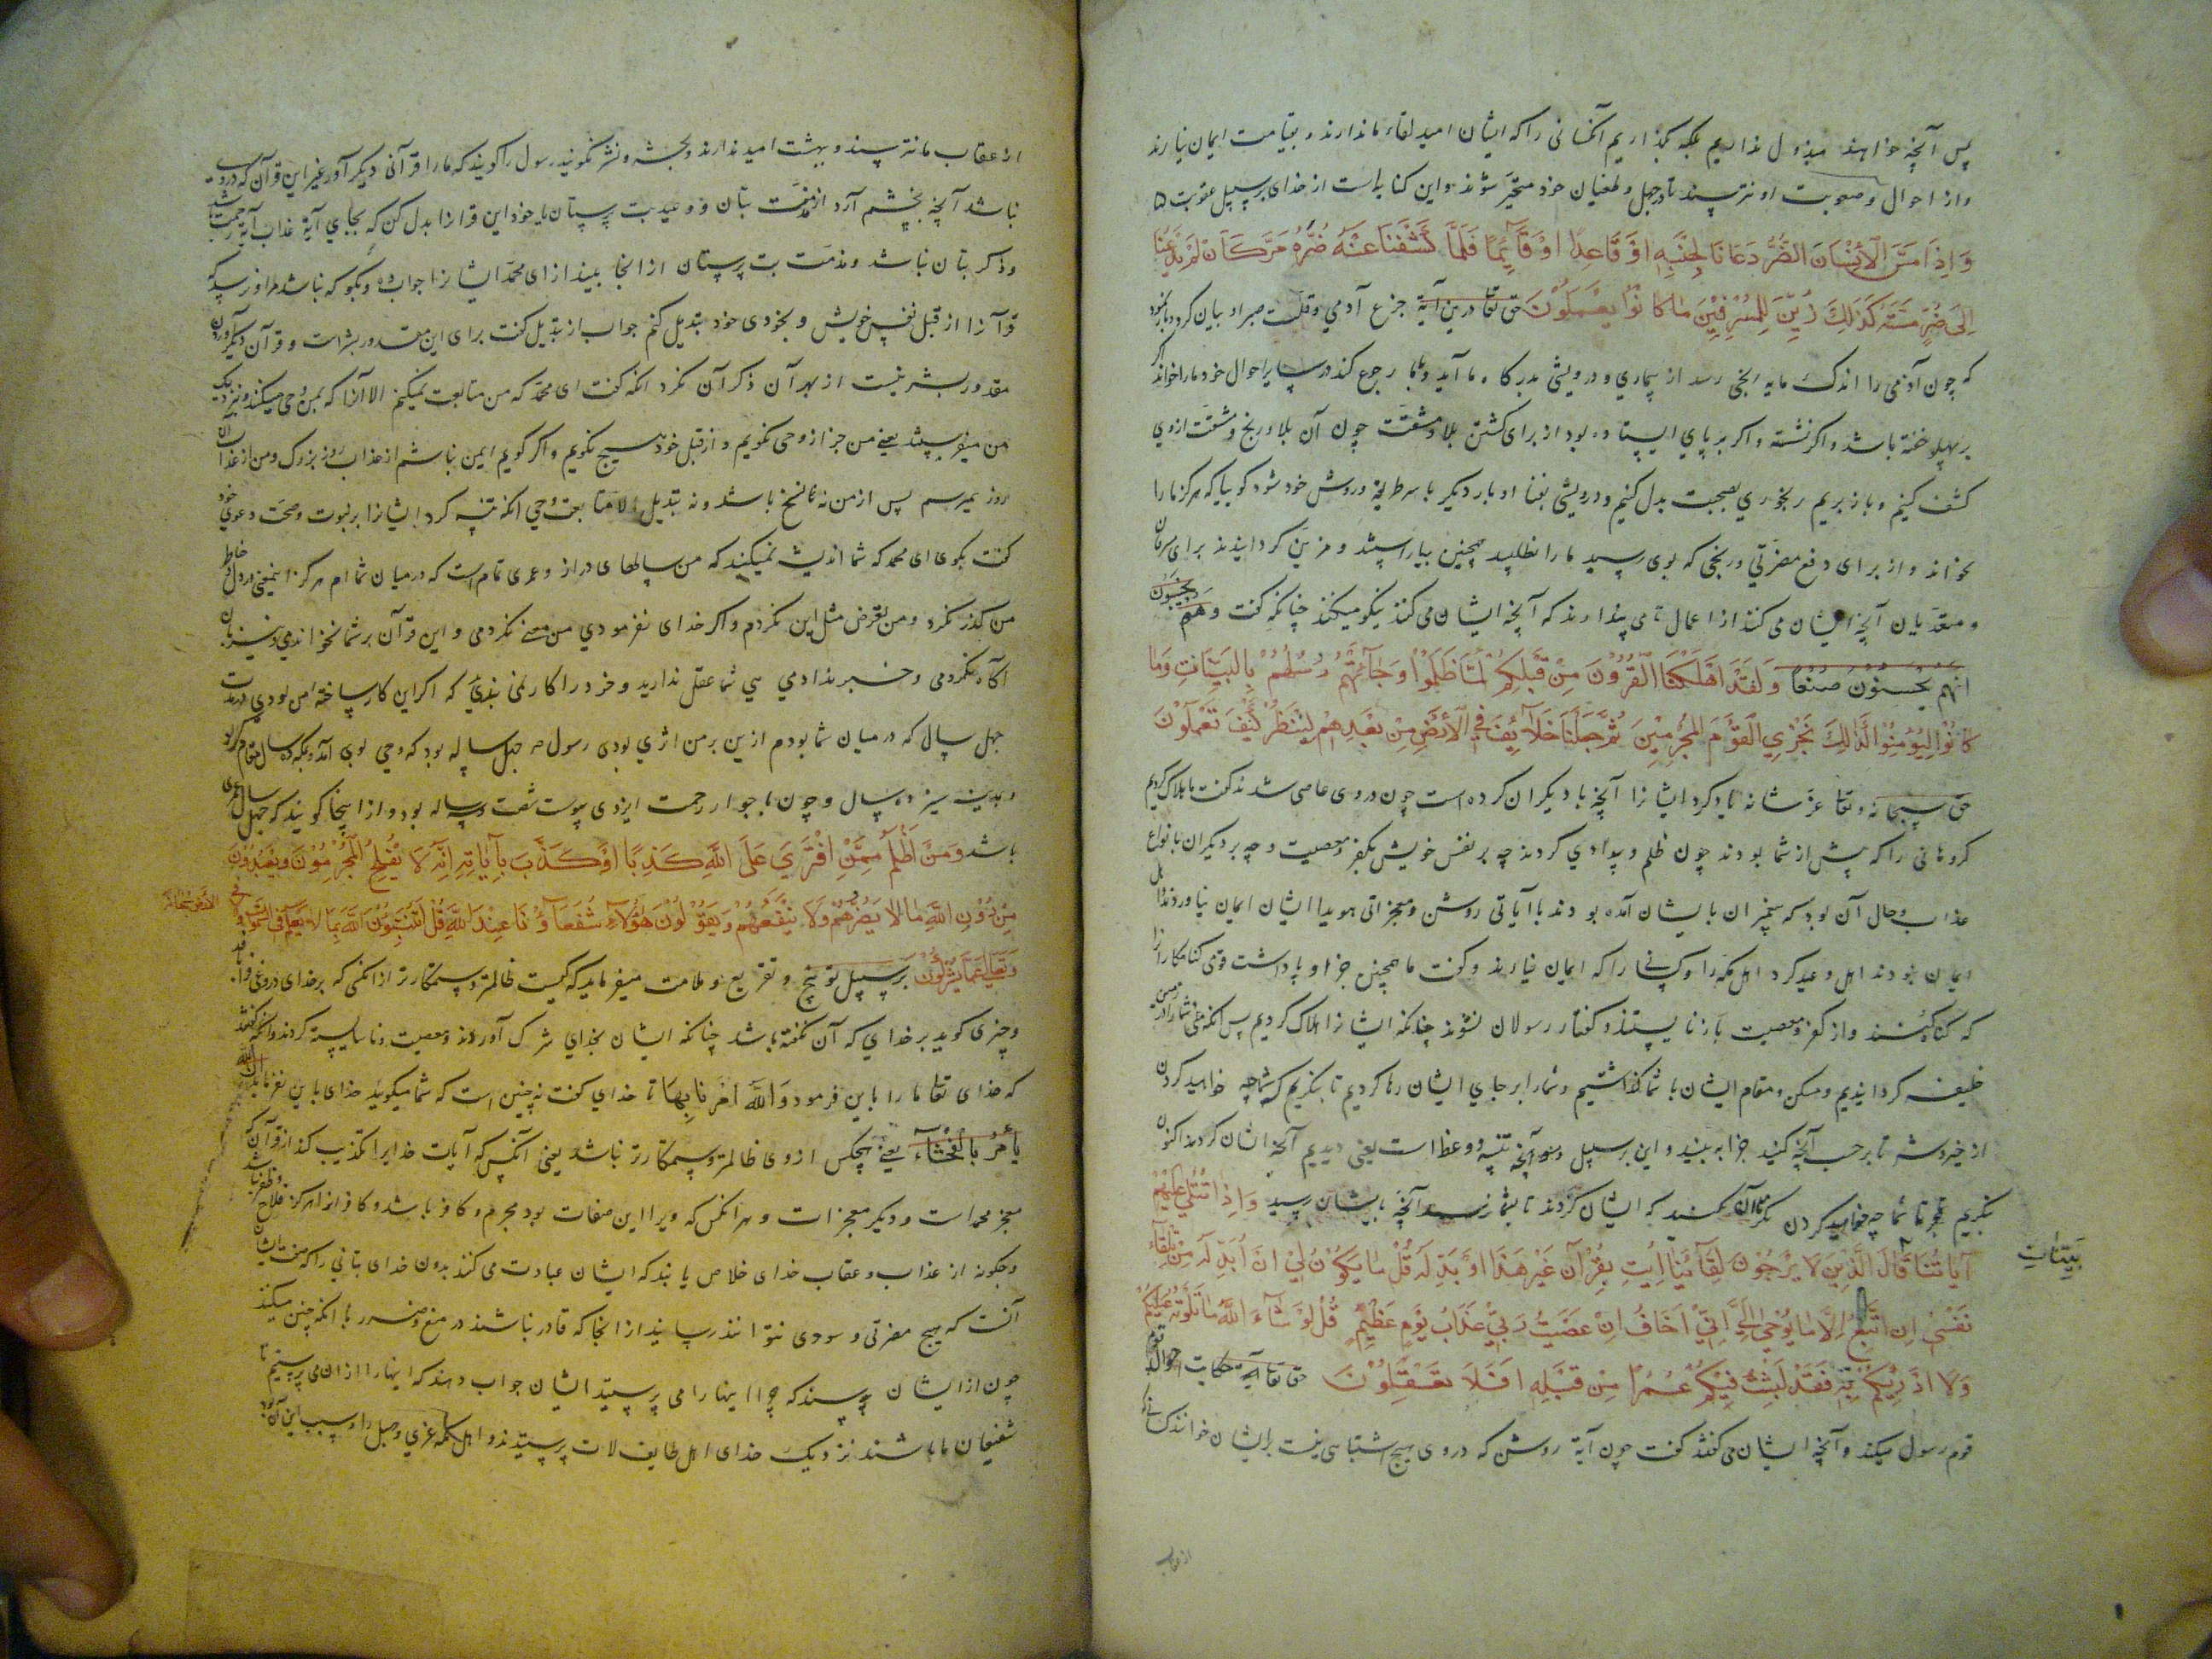 پس آنچه خواهند مبذول نداریم بلکه بگذاریم آنکسانی را که ایشان امید لقاء ما ندارند و بقیامت ایمان نیارند
و از احوال و صعوبت او نترسند تا در جهل و طغیان خود متحیر شوند و این کنایه است از خدای بر سبیل عقوبت
وَاِذَا مَسَّ الْاِنْسَانَ الضُّرُّ دَعَانَا لِجَنْبِهِ اَوْ قَاعِدًا اَوْ قَآئِمًا فَلَمَّا كَشَفْنَا عَنْهُ ضُرَّهُ مَرَّ كَاَنْ لَمْ يَدْعُنَا
اِلَى ضُرٍّ مَسَّهُ كَذَلِكَ زُيِّنَ لِلْمُسْرِفِيْنَ مَا كَانُوْا يَعْمَلُوْنَ حق تعا درین آیة جزع آدمی و قلت صبر او بیان کرد
که چون آدمی را اندک مایه رنجی رسد از بیماری و درویشی بدرگاه ما آید و بما رجوع کند در سایر احوال خود ما را خواند اکر
بر پهلو خفته باشد و اکر نشسته و اکر بر پای ایستاده بود از برای کشتن بلا و مشقت چون آن بلا و رنج و مشقت از وی
کشف کنیم و باز بریم رنجوری بصحت بدل کنیم و درویشی بغنا او بار دیکر با سر طریقه و روش خود شود کویا که هرکز ما را
نخواند و از برای دفع مضرتی و رنجی که بوی رسید ما را نطلبید همچنین بیاراستند و مزین کردانیدند برای مسرفان
و متعدیان آنچه ایشان می کنند از اعمال تا می پندارند که آنچه ایشان می کنند نیکو میکنند چنانکه کفت وَهُمْ يَحْسَبُوْنَ
اَنَّهُمْ يُحْسِنُوْنَ صُنْعًا وَلَقَدْ اَهْلَكْنَا الْقُرُوْنَ مِنْ قَبْلِكُمْ لَمَّا ظَلَمُوْا وَجَآءَتْهُمْ رُسُلُهُمْ بِالْبَيِّنَاتِ وَمَا
كَانُوْا لِيُؤْمِنُوْا كَذَلِكَ نَجْزِي الْقَوْمَ الْمُجْرِمِيْنَ ثُمَّ جَعَلْنَاكُمْ خَلَآئِفَ فِي الْاَرْضِ مِنْ بَعْدِهِمْ لِنَنْظُرَ كَيْفَ تَعْمَلُوْنَ
حق سبحانه و تعا عز شانه یاد کرد ایشانرا آنچه با دیکران کرده است چون در وی عاصی شدند کفت ما هلاک کردیم
کروهانی را که پیش از شما بودند چون ظلم و بیدادی کردند چه بر نفس خویش بکفر و معصیت و چه بر دیکران بانواع
عذاب و حال آن بود که پیغمبران بایشان آمده بودند با آیاتی روشن و معجزاتی هویدا ایشان ایمان نیاوردند
ایمان نبودند اهل وعید کرد اهل مکه را و کسانی را که ایمان نیارند و کفت ما همچنین جزا و پاداشت دهیم قومی کناهکارانرا
که کناه کنند و از کفر و معصیت باز نایستند و کفتار رسولان نشنوند چنانکه ایشانرا هلاک کردیم پس آنکه شما را در زمین
خلیفه کردانیدیم و مسکن و مقام ایشان با شما کذاشتیم و شما را بر جای ایشان رها کردیم تا بنکریم که شما چه خواهید کردن
از خیر و شر تا بر حسب آنچه کنید جزا بینید و این بر سبیل تنبیه و وعظ است یعنی دیدیم آنچه ایشان کردند اکنون
بنکریم تا شما چه خواهید کردن نکر تا آن نکنید که ایشان کردند تا بشما نرسد آنچه بایشان رسید وَاِذَا تُتْلَى عَلَيْهِمْ
آيَاتُنَا قَالَ الَّذِيْنَ لَا يَرْجُوْنَ لِقَآئَنَا ائْتِ بِقُرْآنٍ غَيْرِ هَذَا اَوْ بَدِّلْهُ قُلْ مَا يَكُوْنُ لِيْ اَنْ اُبَدِّلَهُ مِنْ تِلْقَآءِ
بَيِّنَاتٍ
نَفْسِي اِنْ اَتَّبِعُ اِلَّا مَا يُوْحَى اِلَيَّ اِنِّيْ اَخَافُ اِنْ عَصَيْتُ رَبِّيْ عَذَابَ يَوْمٍ عَظِيْمٍ قُلْ لَوْ شَآءَ اللَّهُ مَا تَلَوْتُهُ عَلَيْكُمْ
وَلَا اَدْرَيكُمْ بِهِ فَقَدْ لَبِثْتُ فِيْكُمْ عُمُرًا مِنْ قَبْلِهِ اَفَلَا تَعْقِلُوْنَ حق تعا حکایت احوال
قوم رسول میکند و آنچه ایشان می کفتند کفت چون آیة روشن که در وی هیچ اشتباهی نیست بر ایشان خوانند
از عقاب
از عقاب ما نترسند و ببهشت امید ندارند و بحشر و نشر نکویند رسول را کویند که ما را قرآنی دیکر آور غیر این قرآن که در وی
نباشد آنچه بخشم آرد از مذمت بتان و وعید بت پرستان یا خود این قرآنرا بدل کن که بجای آیة عذاب آیة رحمت باشد
و ذکر بتان نباشد و مذمت بت پرستان از انجا بیند از ای محمد ایشانرا جواب ده و بکو که نباشد مرا و نرسد که
قرآنرا از قبل نفس خویش و بخودی خود تبدیل کنم جواب از تبدیل کفت برای این مقدور بشر است و قرآن دیکر آوردن
مقدور بشر نیست از بهر آن ذکر آن نکرد آنکه کفت ای محمد که من متابعت نمیکنم الا آنرا که بمن وحی میکنند و بنزدیک
من میفرستند یعنی من جز از وحی نکویم و از قبل خود هیچ نکویم و اکر کویم ایمن نباشم از عذاب روز بزرک و من از عذاب آن
روز میترسم پس از من نه نسخ باشد و نه تبدیل الا متابعت وحی آنکه تنبیه کرد ایشانرا بر نبوت و صحت دعوی خود
کفت بکوی ای محمد که شما اندیشه نمیکنید که من سالهای دراز و عمری تمام است که در میان شما ام هرکز این معنی در دل و خاطر
من کذر نکرد و من تعرض مثل این نکردم و اکر خدای نفرمودی من نکردمی و این قرآن بر شما نخواندمی
آکاه نکردمی و خبر ندادمی هی شما عقل ندارید و خرد را کار نمی بندید که اکر این کار ساخته من بودی
چهل سال که در میان شما بودم ازین بر من اثری بودی رسول چهل ساله بود که وحی بوی آمد و بمکه ده سال مقام کرد
و بمدینه سیزده سال و چون با جوار رحمت ایزدی پیوست شصت و سه ساله بود و از اینجا کویند که چهل سال عمری
باشد وَمَنْ اَظْلَمُ مِمَّنِ افْتَرَى عَلَى اللَّهِ كَذِبًا اَوْ كَذَّبَ بِآيَاتِهِ اِنَّهُ لَا يُفْلِحُ الْمُجْرِمُوْنَ وَيَعْبُدُوْنَ
مِنْ دُوْنِ اللَّهِ مَا لَا يَضُرُّهُمْ وَلَا يَنْفَعُهُمْ وَيَقُوْلُوْنَ هَؤُلَآءِ شُفَعَآؤُنَا عِنْدَ اللَّهِ قُلْ اَتُنَبِّئُوْنَ اللَّهَ بِمَا لَا يَعْلَمُ فِي السَّمَوَاتِ وَلَا فِي الْاَرْضِ سُبْحَانَهُ
وَتَعَالَى عَمَّا يُشْرِكُوْنَ بر سبیل توبیخ و تقریع و ملامت میفرماید که کیست ظالمتر و ستمکارتر از آنکس که بر خدای دروغی فرا بافد
و چیزی کوید بر خدای که آن نکفته باشد چنانکه ایشان بخدای شرک آوردند و معصیت و ناشایسته کردند و آنکه کفتند
که خدای تعا ما را باین فرمود وَاللَّهُ اَمَرَنَا بِهَا تا خدای کفت نه چنین است که شما میکویید خدای باین نفرماید اِنَّ اللَّهَ لَا
يَأْمُرُ بِالْفَحْشَآءِ یعنی هیچکس از وی ظالمتر و ستمکارتر نباشد یعنی آنکس که آیات خدایرا تکذیب کند از قرآن که
معجز محمد است و دیکر معجزات و هر آنکس که ویرا این صفات بود مجرم و کافر باشد و کافرانرا هرکز فلاح و ظفر نباشد
و چکونه از عذاب و عقاب خدای خلاص یابند که ایشان عبادت می کنند بدون خدای بتانی را که صفت ایشان
آنست که هیچ مضرتی و سودی نتوانند رسانید از انجا که قادر نباشند در منع و ضرر با آنکه چنین میکنند
چون از ایشان پرسند که چرا اینها را می پرستید ایشان جواب دهند که اینها را از آن می پرستیم تا
شفیعان ما باشند نزدیک خدای اهل طایف لات پرستیدند و اهل مکه عزی و هبل را و سبب این آن بود